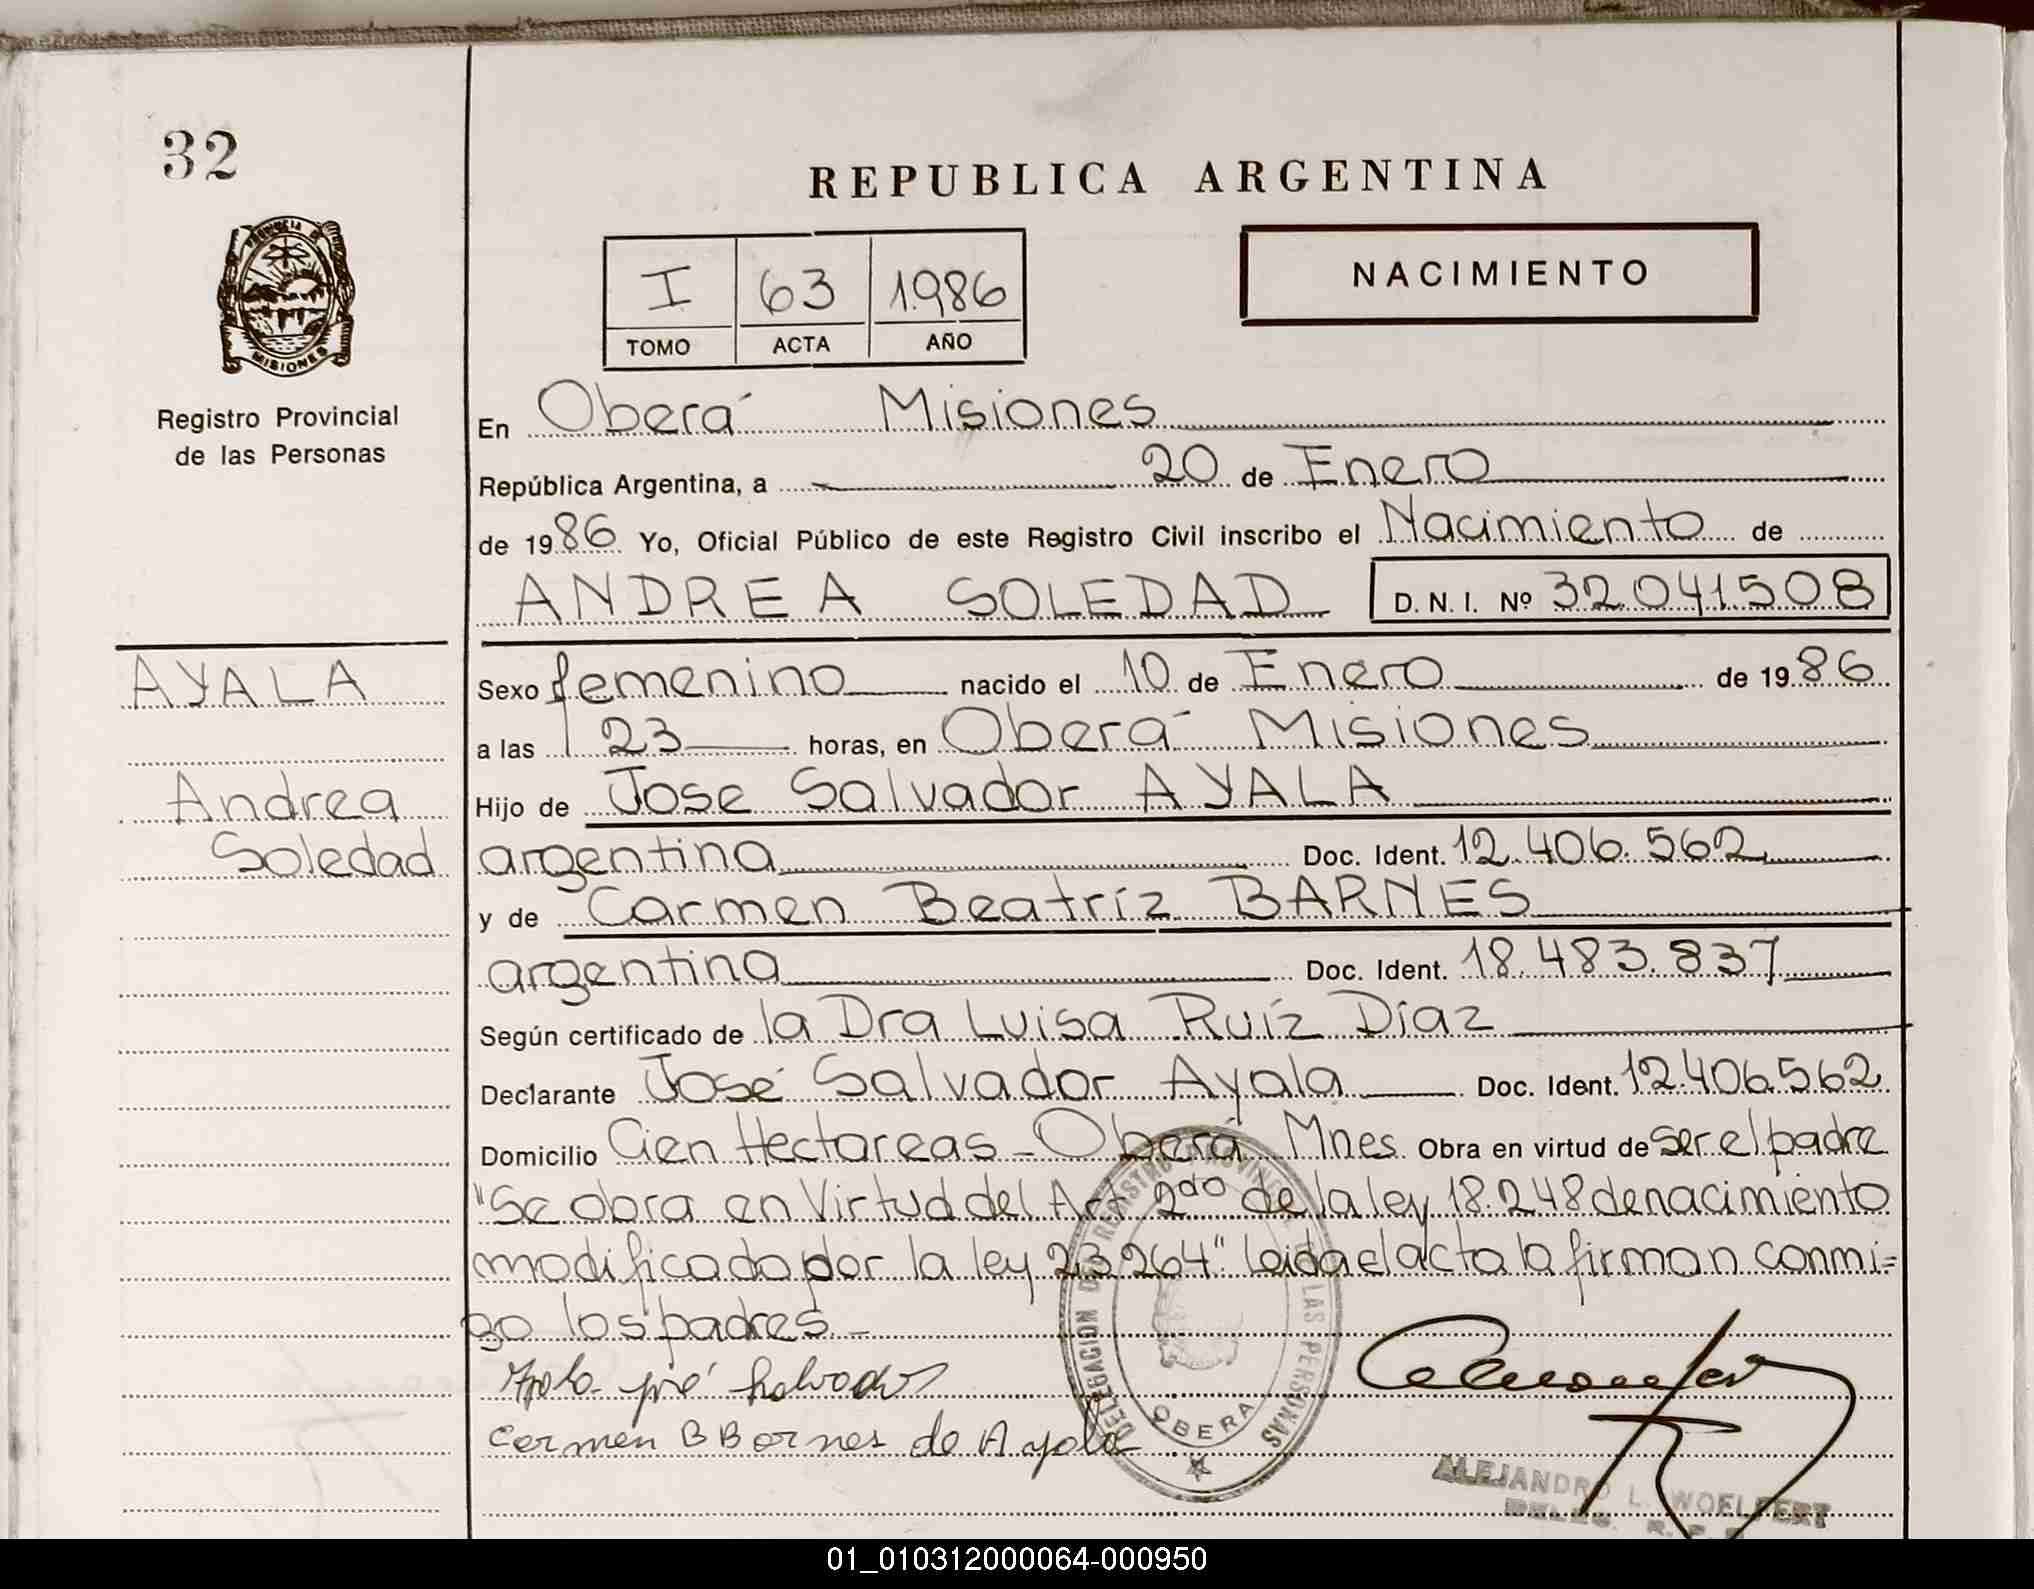 32
REPUBLICA ARGENTINA
PROVINCIA DE
MISIONES
I 63 1.986
TOMO ACTA AÑO
NACIMIENTO
Registro Provincial
de las Personas
En Oberá Misiones
República Argentina, a 20 de Enero
de 1986 Yo, Oficial Público de este Registro Civil inscribo el Nacimiento de
ANDREA SOLEDAD D. N. I. Nº 32.041.508
AYALA
Andrea
Soledad
Sexo femenino nacido el 10 de Enero de 1986
a las 23 horas, en Oberá Misiones
Hijo de Jose Salvador AYALA
argentina Doc. Ident. 12.406.562
y de Carmen Beatríz BARNES
argentina Doc. Ident. 18.483.837
Según certificado de la Dra Luisa Ruíz Díaz
Declarante José Salvador Ayala Doc. Ident. 12.406.562
Domicilio Cien Hectareas - Oberá Mnes. Obra en virtud de ser el padre
"Se obra en Virtud del Art 2do de la ley 18.248 de nacimiento
modificado por la ley 23.264" leida el acta la firman conmi=
go los padres -
Ayala José Salvador
Carmen B Barnes de Ayala
DELEGACION DEL REGISTRO PROVINCIAL DE LAS PERSONAS
OBERA
ALEJANDRO L. WOELFERT
DELEG. R. P.
01_010312000064-000950